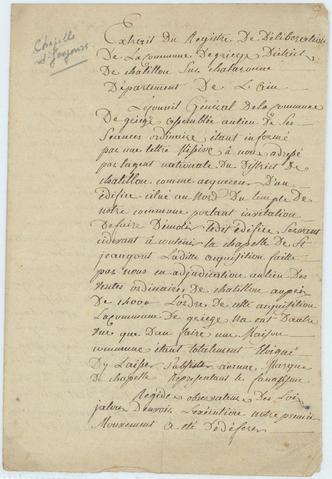 Chapelle
d'Jonjoux
Extrait Du Registre De Deliberation
De La Commune De griege District
De chatillon sur chalaronne
Département De L'ain
Le Conseil Général De la Commune
De griege assemblée au lieu De Ses
Seances ordinaire étant informé
par une lettre Missive à nous adressé
par lagent nationale Du District De
chatillon comme acquereur D'un
édifice situé au Nord Du temple De
notre commune portant invitation
De faire Demolir ledit édifice Servant
cidevant à soutenir la chapelle De St
jeangont Laditte acquisition faitte
par nous en adjudication au lieu Des
ventes ordinaires De chatillon au prix
De Lordre De cette acquisition
La Commune De griege Na eut Dautre
vue que Dan faire une Maison
commune étant totalement Eloigné
Dy Laisser Subsister aucune Marque
De chapelle Representant le fanatisme
Regide observateur Des Loix
jaloux Den voir Lexécution notre premier
Mouvement a été De déferer